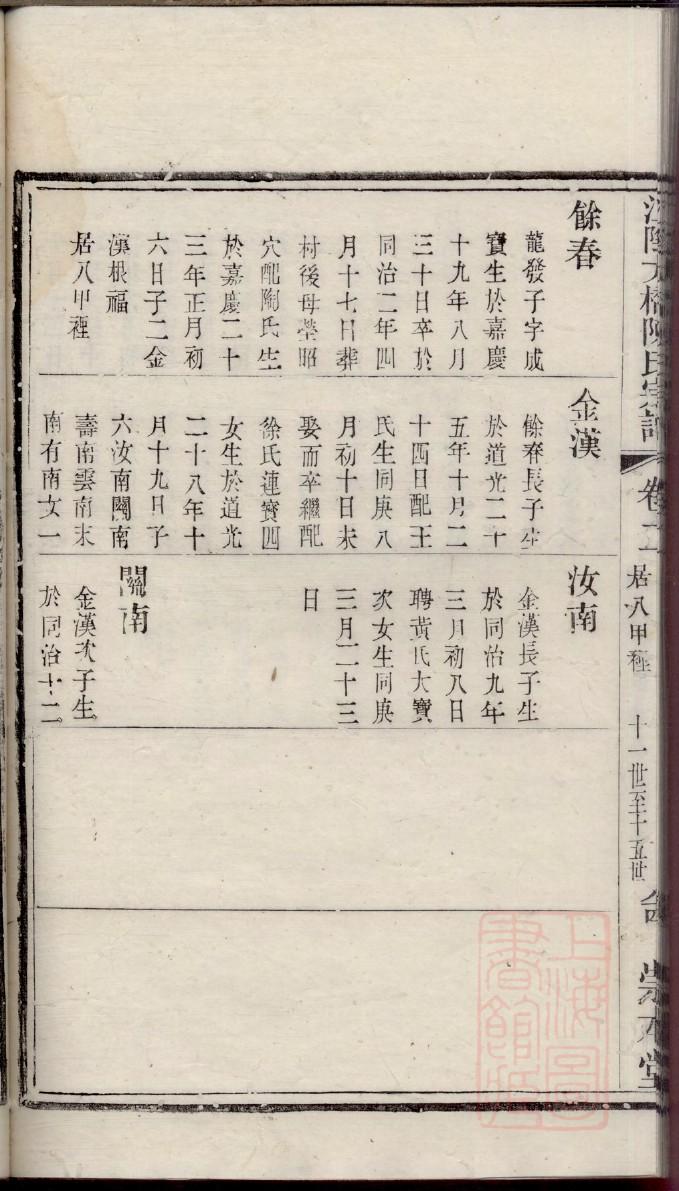 卷二 居八甲裡 十一世至十五世
餘春
龍發子字成
寶生於嘉慶
十九年八月
三十日卒於
同治二年四
月十七日葬
村後母塋昭
穴配陶氏生
於嘉慶二十
三年正月初
六日子二金
漢根福
居八甲裡
金漢
餘春長子生
於道光二十
五年十月二
十四日配王
氏生同庚八
月初十日未
娶而卒繼配
徐氏蓮寶四
女生於道光
二十八年十
月十九日子
六汝南關南
壽南雲南末
南有南女一
汝南
金漢長子生
於同治九年
三月初八日
聘黃氏大寶
次女生同庚
三月二十三
日
關南
金漢次子生
於同治十二
上海圖
書館藏